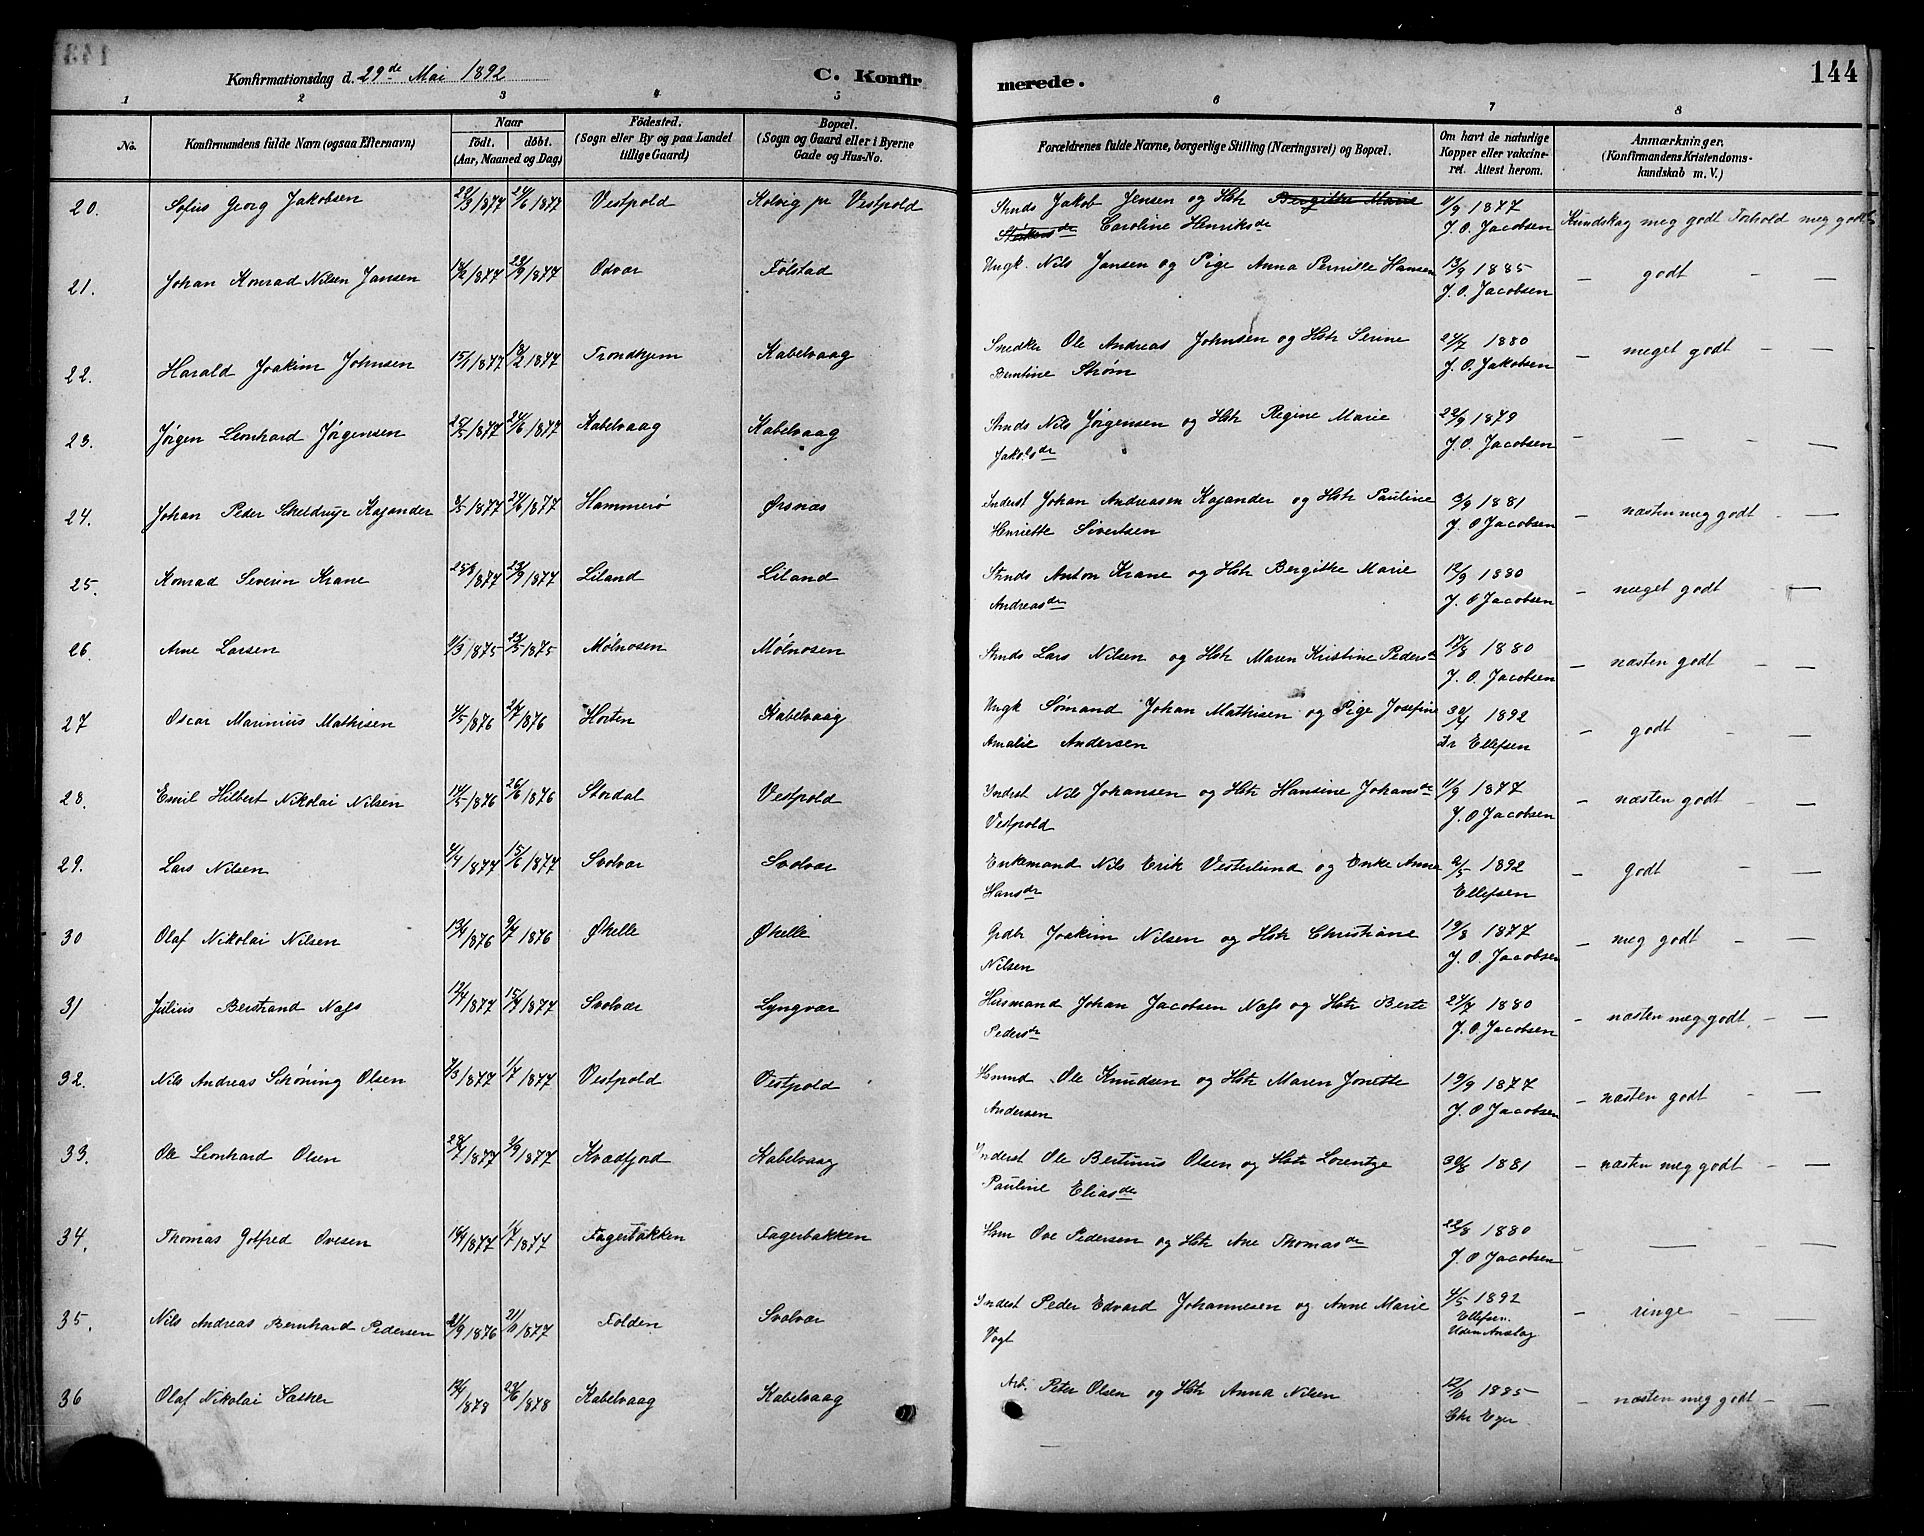 Konfirmationsdag d. 29de Mai 1892 C. Konfirmerede. 144
1 2 3 4 5 6 7 8
No. Konfirmandens fulde Navn (ogsaa Efternavn) Naar födt. döbt. (Aar, Maaned og Dag) Födested. (Sogn eller By og paa Landet tillige Gaard) Bopæl. (Sogn og Gaard eller i Byerne Gade og Hus-No. Forældrenes fulde Navne, borgerlige Stilling (Næringsvei) og Bopæl. Om havt de naturlige Kopper eller vakcineret. Attest herom. Anmærkninger. (Konfirmandens Kristendomskundskab m. V.)
20. Sofus Georg Jakobsen 29/3 1877 24/6 1877 Vestpold Kalvig pr Vestpold Strnds Jakob Jensen og Hstr Bergithe Marie 11/9 1877 Kundskap meg godt Forhold meg godt
Caroline Henriksdr J. O. Jacobsen
21. Johan Konrad Nilsen Jansen 14/2 1877 23/9 1877 Odvar Følstad Ungk. Nils Jansen og Pige Anna Pernille Hansen 13/9 1885 – godt – –
J. O. Jacobsen
22. Harald Joakim Johnsen 15/1 1877 18/2 1877 Trondhjem Kabelvaag Snedker Ole Andreas Johnsen og Hstr Serine 24/7 1880 – meget godt – –
Berntine Strøm J. O. Jakobsen
23. Jørgen Leonhard Jørgensen 25/5 1877 24/6 1877 Kabelvaag Kabelvaag Strnds Nils Jørgensen og Hstr Regine Marie 22/9 1879 – – –
Jakobsdr J. O. Jacobsen
24. Johan Peder Scheldrup Kajander 8/5 1877 24/6 1877 Hammerø Ørsnæs Inderst Johan Andreasen Kajander og Hstr Pauline 3/9 1881 – næsten meg godt – –
Henriette Sivertsen J. O Jacobsen
25. Konrad Severin Krane 25/8 1877 23/9 1877 Liland Liland Strnds Anton Krane og Hstr Bergithe Marie 12/9 1880 – meget godt –
Andreasdr J. O Jacobsen
26. Arne Larsen 11/3 1875 23/5 1875 Mølnosen Mølnosen Strnds Lars Nilsen og Hstr Maren Kristine Pedersdr 17/8 1880 – næsten godt – –
J. O. Jacobsen
27 Oscar Marinius Mathisen 4/5 1876 24/7 1876 Horten Kabelvaag Ungk Sømand Johan Mathisen og Pige Josefine 30/4 1892 – godt – –
Amalie Andersen Dr Ellefsen
28. Emil Hilbert Nikolai Nilsen 14/5 1876 26/6 1876 Stordal Vestpold Inderst Nils Johansen og Hstr Hansine Johansdr 11/9 1877 – næsten godt – –
Vestpold J. O Jacobsen
29. Lars Nilsen 4/4 1877 15/6 1877 Svolvær Svolvær Enkemand Nils Erik Vesterlund og Enke Anne 2/5 1892 – godt – –
Hansdr Ellefsen
30 Olaf Nikolai Nilsen 13/4 1876 9/7 1876 Økelle Økelle Grdbr Joakim Nilsen og Hstr Christiane 19/8 1877 – meg godt – –
Nilsen J. O. Jacobsen
31 Julius Berstrand Næss 12/4 1877 15/4 1877 Svolvær Lyngvær Husmand Johan Jacobsen Næss og Hstr Berte 24/7 1880 – næsten meg godt – –
Pedersdr J. O. Jacobsen
32. Nils Andreas Schøning Olsen 7/3 1877 1/7 1877 Vestpold Vestpold Husmd Ole Knudsen og Hstr Maren Jonette 19/9 1877 – næsten godt – –
Andersen J. O Jacobsen
33. Ole Leonhard Olsen 28/7 1877 2/9 1877 Kvadfjord Kabelvaag Inderst Ole Bertinus Olsen og Hstr Lorentze 30/8 1881 – næsten meg godt – –
Pauline Eliasdr
34. Thomas Gotfred Ovesen 14/4 1877 1/7 1877 Fagerbakken Fagerbakken Hsm Ove Pedersen og Hstr Ane Thomasdr 22/8 1880 – – –
J. O Jacobsen
35. Nils Andreas Bernhard Pedersen 21/9 1876 1877 Folden Svolvær Inderst Peder Edvard Johannesen og Anne Marie 4/5 1892 – ringe – –
Vogt Ellefsen.
Uden Anslag
36 Olaf Nikolai Sæther 1878 23/6 1878 Kabelvaag Kabelvaag Arb. Peter Olsen og Hstr Anna Nilsen 1885 – næsten meg godt – –
Chr Eger